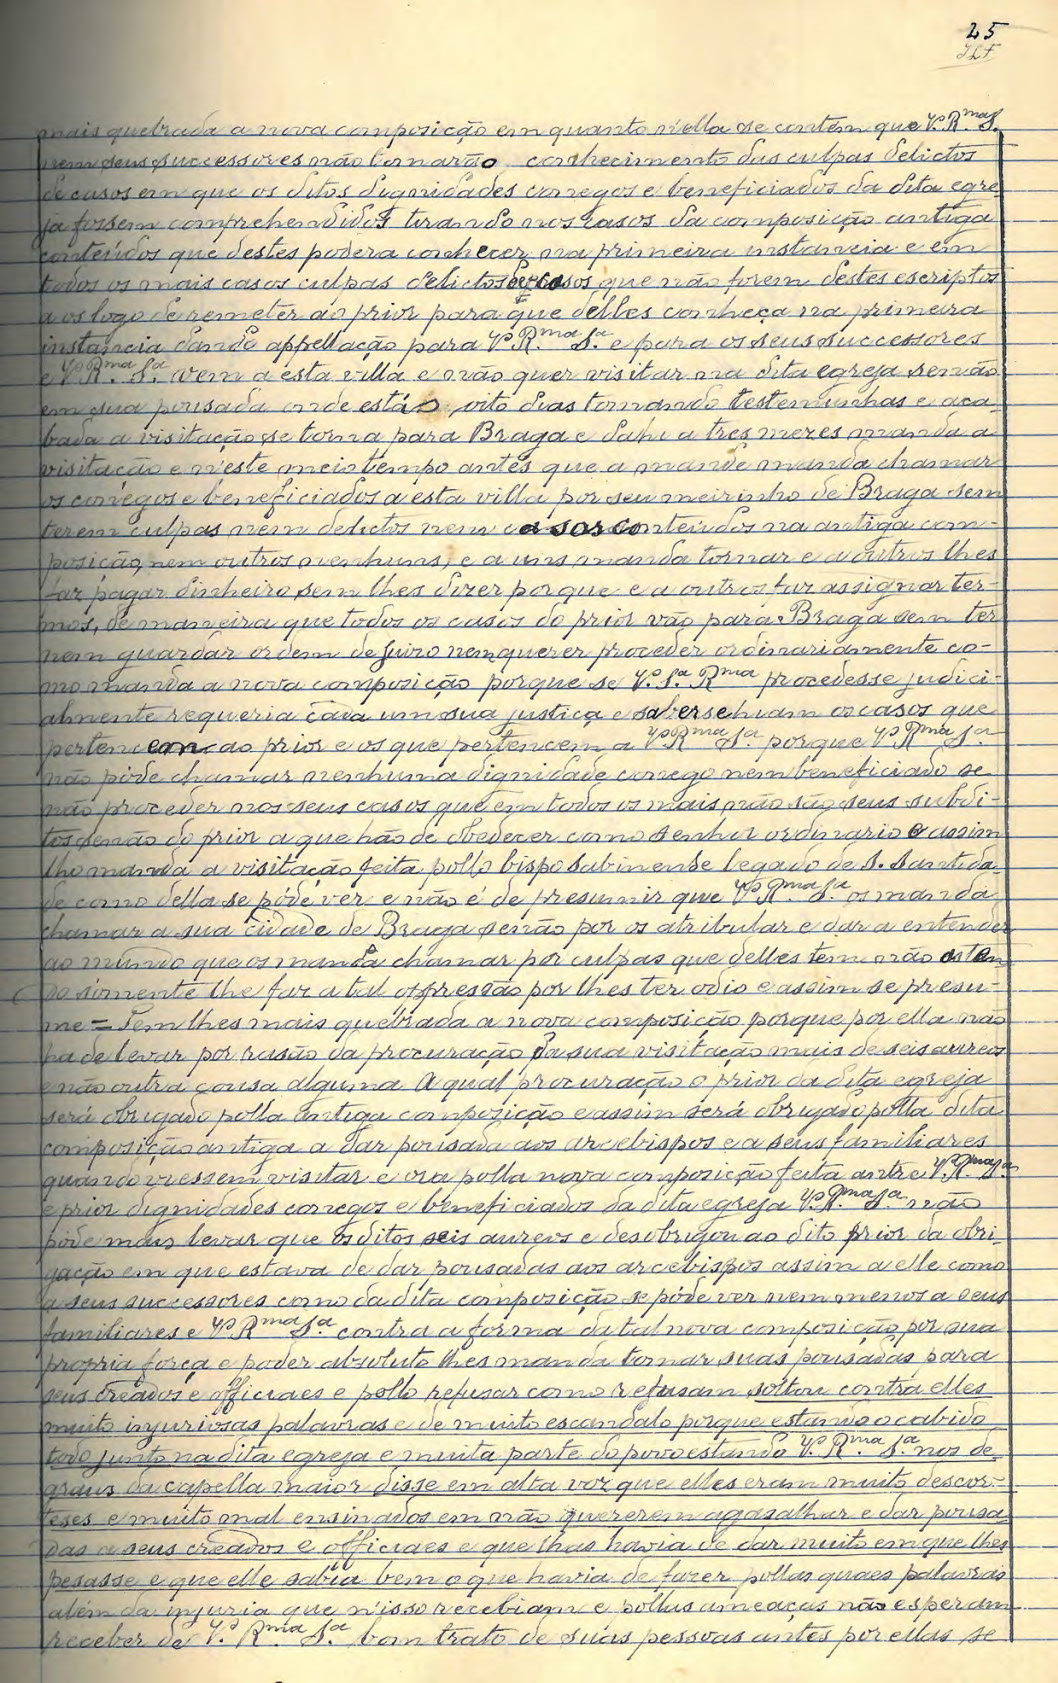 25
mais quebrada a nova composição em quanto n'ella se contém que V.ª R.ma S.
nem seus successores não tomarão conhecimento das culpas delictos
de casos em que os ditos dignidades conegos e beneficiados da dita egre-
ja fossem comprehendidos tirando nos casos da composição antiga
conteúdos que destes podera conhecer na primeira instancia e em
todos os mais casos culpas delictos e casos que não forem destes escriptos
a os logo de remeter ao prior para que delles conheça na primeira
instancia dando appellação para V.ª R.ma S.ª e para os seus successores
e V.ª R.ma S.ª vem a esta villa e não quer visitar na dita egreja senão
em sua pousada onde está oito dias tomando testemunhas e aca-
bada a visitação se torna para Braga e dahi a tres mezes manda a
visitação e n'este meio tempo antes que a mande manda chamar
os conegos e beneficiados a esta villa por seu meirinho de Braga sem
terem culpas nem delictos nem casos conteudos na antiga com-
posição, nem outros nenhuns, e a uns manda tornar e a outros lhes
faz pagar dinheiro sem lhes dizer porque e a outros faz assignar ter-
mos, de maneira que todos os casos do prior vão para Braga sem ter
nem guardar ordem de juizo nem querer proceder ordinariamente co-
mo manda a nova composição porque se V.ª S.ª R.ma procedesse judici-
almente requeria cada um sua justiça e saberse hiam os casos que
pertencem ao prior e os que pertencem a V.ª R.ma S.ª porque V.ª R.ma S.ª
não póde chamar nenhuma dignidade conego nem beneficiado se
não proceder nos seus casos que em todos os mais não são seus subdi-
tos senão do prior a que hão de obedecer como senhor ordinario e assim
lho manda a visitação feita pollo bispo sabinense legado de S. Santida-
de como della se póde ver e não é de presumir que V.ª R.ma S.ª os manda
chamar a sua cidade de Braga senão por os atribular e dar a entender
ao mundo que os manda chamar por culpas que delles tem não os ten-
do somente lhe faz a tal oppressão por lhes ter odio e assim se presu-
me = Tem lhes mais quebrada a nova composição porque por ella não
ha de levar por rasão da procuração da sua visitação mais de seis aureos
e não outra cousa alguma a qual procuração o prior da dita egreja
será obrigado polla antiga composição e assim será obrigado polla dita
composição antiga a dar pousada aos arcebispos e a seus familiares
quando viessem visitar e ora polla nova composição feita antre V.ª R.ma S.ª
e prior dignidades conegos e beneficiados da dita egreja V.ª R.ma S.ª não
póde mais levar que os ditos seis aureos e desobrigou ao dito prior da obri-
gação em que estava de dar pousadas aos arcebispos assim a elle como
a seus successores como da dita composição se póde ver nem menos a seus
familiares e V.ª R.ma S.ª contra a forma da tal nova composição por sua
propria força e poder absoluto lhes manda tomar suas pousadas para
seus creados e officiaes e pollo refusar como refusam soltou contra elles
muito injuriosas palavras e de muito escandalo porque estando o cabido
todo junto na dita egreja e muita parte do povo estando V.ª R.ma S.ª nos de-
graus da capella maior disse em alta voz que elles eram muito descor-
teses e muito mal ensinados em não quererem agasalhar e dar pousa-
das a seus creados e officiaes e que lhas havia de dar muito em que lhes
pesasse e que elle sabia bem o que havia de fazer pollas quaes palavras
além da injuria que n'isso recebiam e pollas ameaças não esperam
receber de V.ª R.ma S.ª bom trato de suas pessoas antes por ellas se